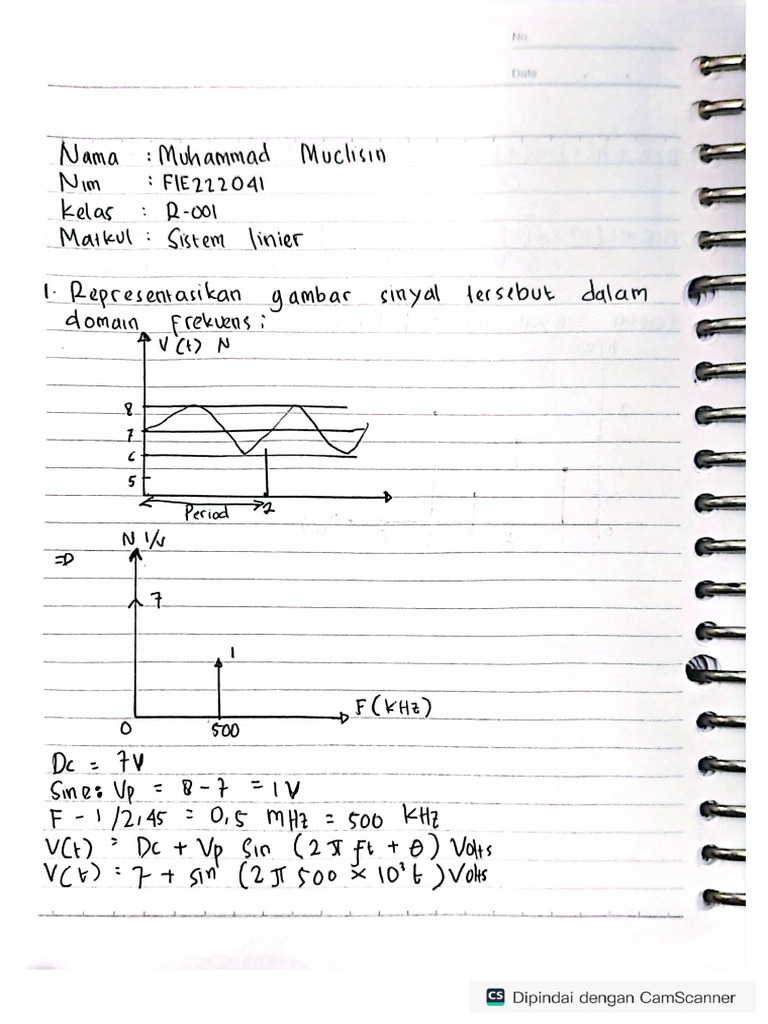 No.
Date
Nama : Muhammad Muclisin
Nim : F1E222041
Kelas : R-001
Matkul : Sistem linier
1. Representasikan gambar sinyal tersebut dalam
domain Frekuens :
V(t) N
8
7
6
5
Period 2
N
7
1
F (KHz)
0 500
Dc = 7V
Sine: Vp = 8 - 7 = 1V
F - 1/2,45 = 0,5 mHz = 500 kHz
V(t) = Dc + Vp Sin (2π ft + θ) Volts
V(t) = 7 + sin (2π 500 × 10³ t) Volts
CS Dipindai dengan CamScanner